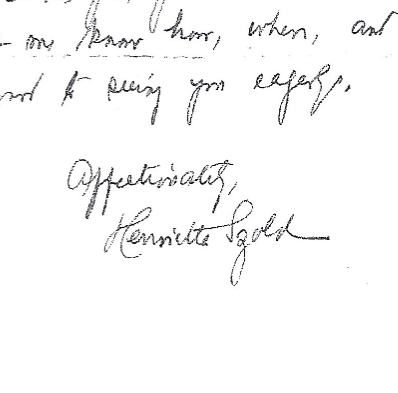 me know how, when, and
to seeing you eagerly.
Affectionately,
Henrietta Szold